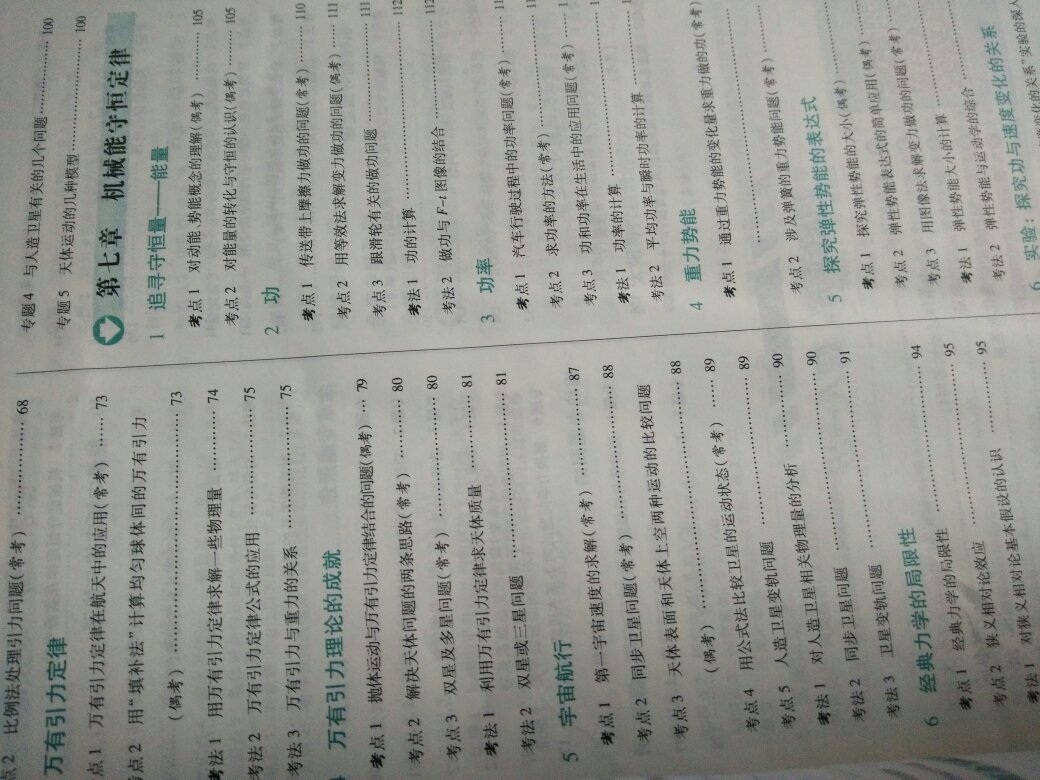 点2 比例法处理引力问题(常考) …………… 68
万有引力定律
点1 万有引力定律在航天中的应用(常考) …… 73
考点2 用“填补法”计算均匀球体间的万有引力
(偶考) …………………………… 73
考法1 用万有引力定律求解一些物理量 ………… 74
考法2 万有引力定律公式的应用 ……………… 75
考法3 万有引力与重力的关系 ………………… 75
万有引力理论的成就
考点1 抛体运动与万有引力定律结合的问题(偶考) … 79
考点2 解决天体问题的两条思路(常考) ………… 80
考点3 双星及多星问题(常考) ………………… 80
考法1 利用万有引力定律求天体质量 …………… 81
考法2 双星或三星问题 ………………………… 81
5 宇宙航行
考点1 第一宇宙速度的求解(常考) …………… 87
考点2 同步卫星问题(常考) …………………… 88
考点3 天体表面和天体上空两种运动的比较问题
(偶考) ……………………………… 88
考点4 用公式法比较卫星的运动状态(常考) …… 89
考点5 人造卫星变轨问题 ……………………… 89
考法1 对人造卫星相关物理量的分析 ………… 90
考法2 同步卫星问题 …………………………… 90
考法3 卫星变轨问题 …………………………… 91
6 经典力学的局限性
考点1 经典力学的局限性 ……………………… 94
考点2 狭义相对论效应 ………………………… 95
考法1 对狭义相对论基本假设的认识 ………… 95
专题4 与人造卫星有关的几个问题 ………… 100
专题5 天体运动的几种模型 ………………… 100
第七章 机械能守恒定律
1 追寻守恒量——能量
考点1 对动能、势能概念的理解(偶考) ……… 105
考点2 对能量的转化与守恒的认识(偶考) …… 105
2 功
考点1 传送带上摩擦力做功的问题(常考) …… 110
考点2 用等效法求解变力做功的问题(偶考) … 111
考点3 跟滑轮有关的做功问题 ……………… 111
考法1 功的计算 ……………………………… 112
考法2 做功与 F-t 图像的结合 ……………… 112
3 功率
考点1 汽车行驶过程中的功率问题(常考) …… 11
考点2 求功率的方法(常考) ………………… 11
考点3 功和功率在生活中的应用问题(常考) … 1
考法1 功率的计算 …………………………… 1
考法2 平均功率与瞬时功率的计算 …………
4 重力势能
考点1 通过重力势能的变化量求重力做的功(常考)
……………………………
考点2 涉及弹簧的重力势能问题(常考) ………
5 探究弹性势能的表达式
考点1 探究弹性势能的大小(偶考) …………
考点2 弹性势能表达式的简单应用(偶考) ……
考点3 用图像法求解变力做功的问题(常考)
考法1 弹性势能大小的计算 …………………
考法2 弹性势能与运动学的综合 ……………
6 实验：探究功与速度变化的关系
变化的关系”实验的深入